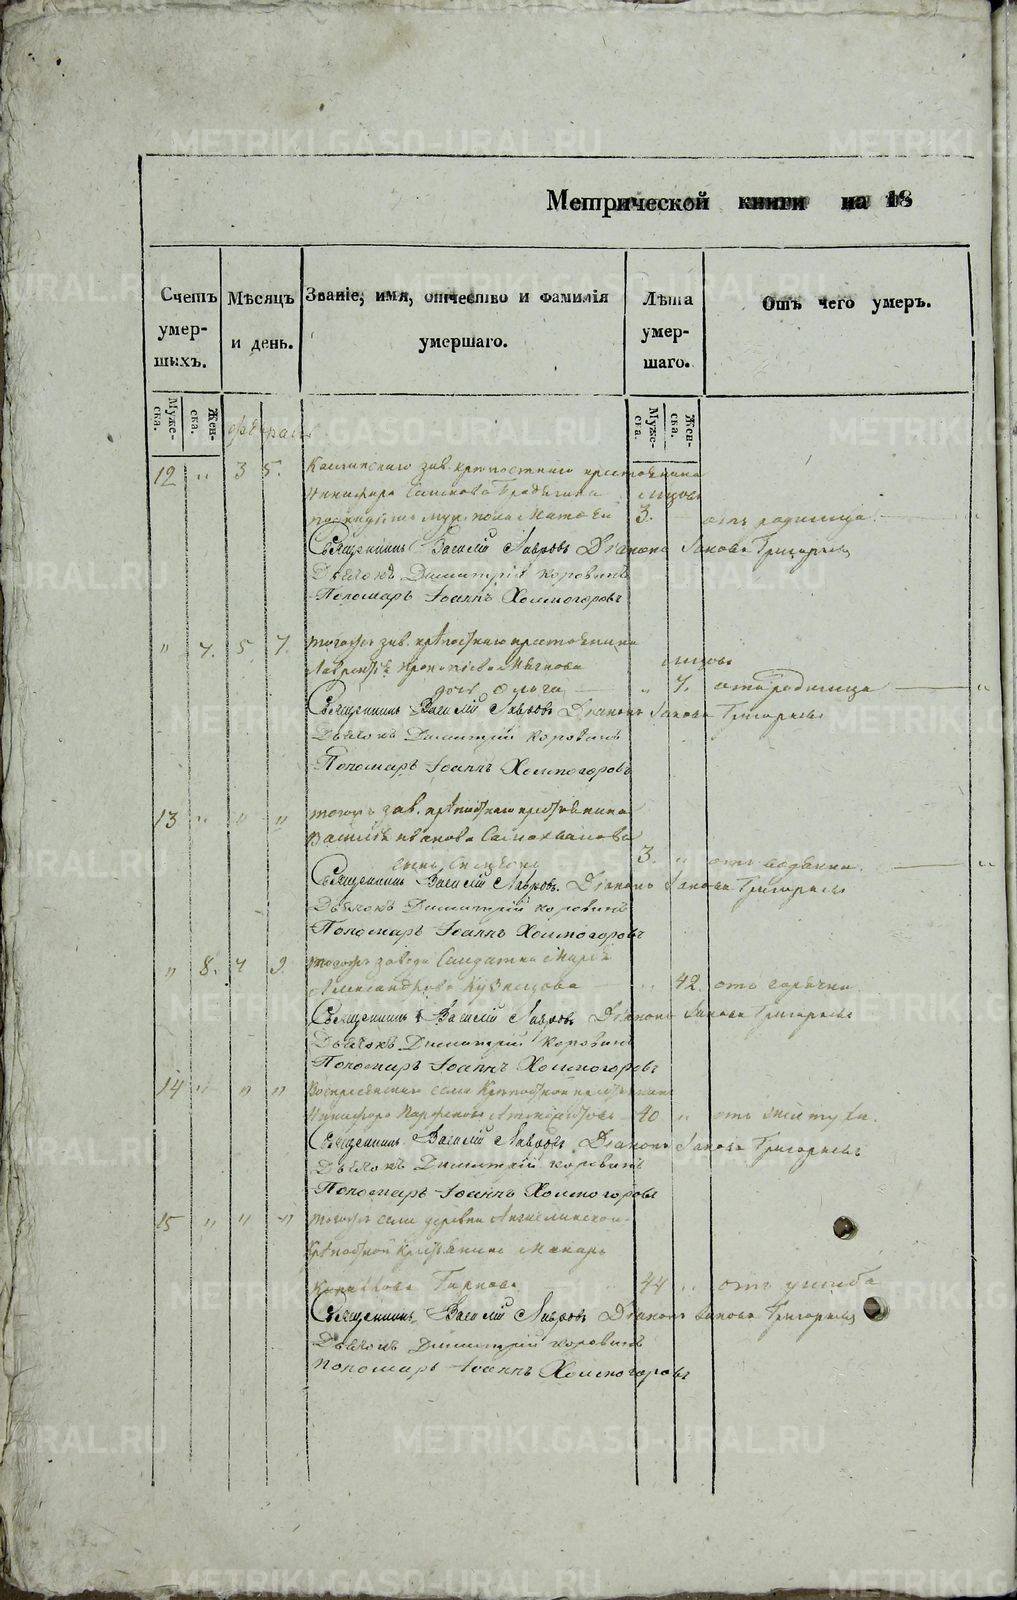 Метрической книги на 18
Счетъ умер-шихъ.
Мѣсяцъ и день.
Званіе, имя, отчество и фамилія умершаго.
Лѣта умер-шаго.
Отъ чего умеръ.
Муже-ска.
Жен-ска.
Муже-ска.
Жен-ска.
февраль
12 " 3 5. Каслинскаго зав. крѣпостнаго
месяцовъ
3. отъ родимца.
Священникъ Василій Лавровъ Діаконъ Іаковъ Григорьевъ
Дьячокъ Димитрій Коровинъ
Пономарь Іоаннъ Холмогоровъ
" 7. 5. 7. тогожъ зав. крѣпостнаго
Лаврентія
дочь Ольга " 7. отъ родимца "
Священникъ Василій Лавровъ Діаконъ Іаковъ Григорьевъ
Дьячокъ Димитрій Коровинъ
Пономарь Іоаннъ Холмогоровъ
13 " " " тогожъ зав. крѣпостнаго
Василія Иванова
сынъ 3. " отъ водянки. "
Священникъ Василій Лавровъ. Діаконъ Іаковъ Григорьевъ
Дьячокъ Димитрій Коровинъ
Пономарь Іоаннъ Холмогоровъ
" 8. 7 9. тогожъ завода Солдатка Марія
Александрова Кузнецова " 42. отъ горячки.
Священникъ Василій Лавровъ Діаконъ Іаковъ Григорьевъ
Дьячокъ Димитрій Коровинъ
Пономарь Іоаннъ Холмогоровъ
14 " " " Воскресенскаго села Крѣпостной
Никифоръ 40 "
Священникъ Василій Лавровъ Діаконъ Іаковъ Григорьевъ
Дьячокъ Димитрій Коровинъ
Пономарь Іоаннъ Холмогоровъ
15 " " " тогожъ села деревни
Крѣпостной Крестьянинъ Макаръ
44 " отъ ушиба
Священникъ Василій Лавровъ Діаконъ Іаковъ Григорьевъ
Дьячокъ Димитрій Коровинъ
Пономарь Іоаннъ Холмогоровъ
METRIKI.GASO-URAL.RU